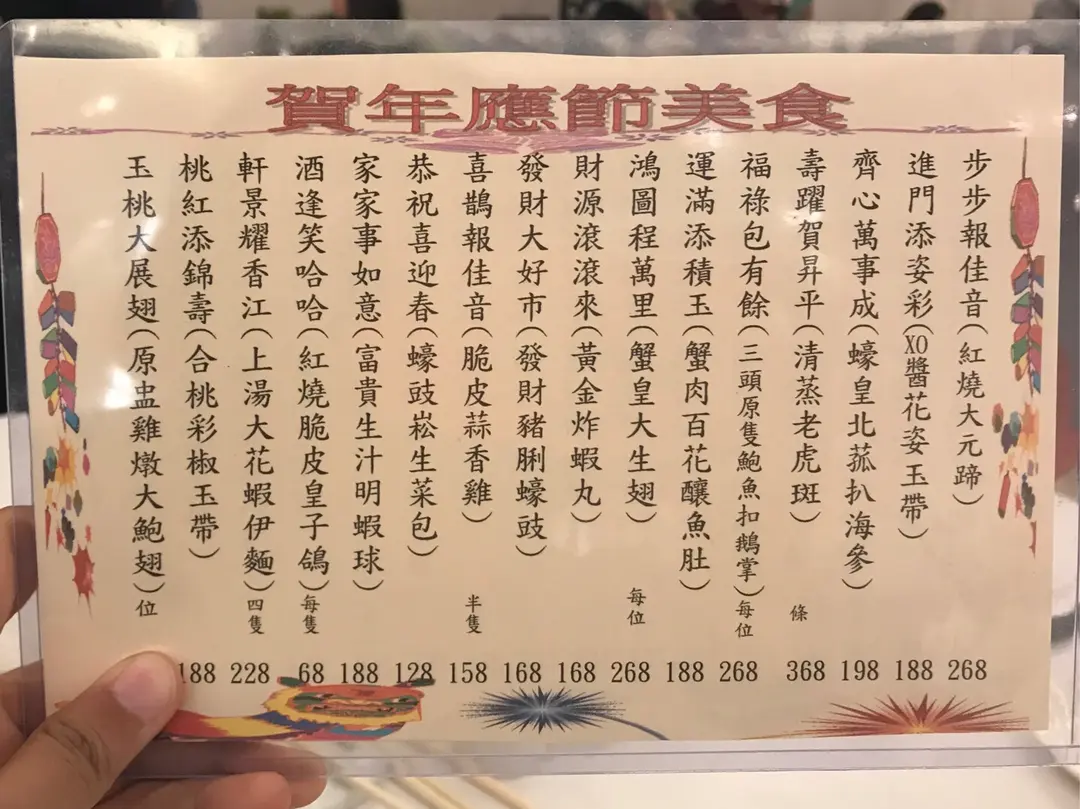 賀年應節美食
步步報佳音(紅燒大元蹄) 268
進門添姿彩(XO醬花姿玉帶) 188
齊心萬事成(蠔皇北菰扒海參) 198
壽躍賀昇平(清蒸老虎斑) 條 368
福祿包有餘(三頭原隻鮑魚扣鵝掌) 每位 268
運滿添積玉(蟹肉百花釀魚肚) 188
鴻圖程萬里(蟹皇大生翅) 每位 268
財源滾滾來(黃金炸蝦丸) 168
發財大好市(發財豬脷蠔豉) 168
喜鵲報佳音(脆皮蒜香雞) 半隻 158
恭祝喜迎春(蠔豉崧生菜包) 128
家家事如意(富貴生汁明蝦球) 188
酒逢笑哈哈(紅燒脆皮皇子鴿) 每隻 68
軒景耀香江(上湯大花蝦伊麵) 四隻 228
桃紅添錦壽(合桃彩椒玉帶) 188
玉桃大展翅(原盅雞燉大鮑翅) 位